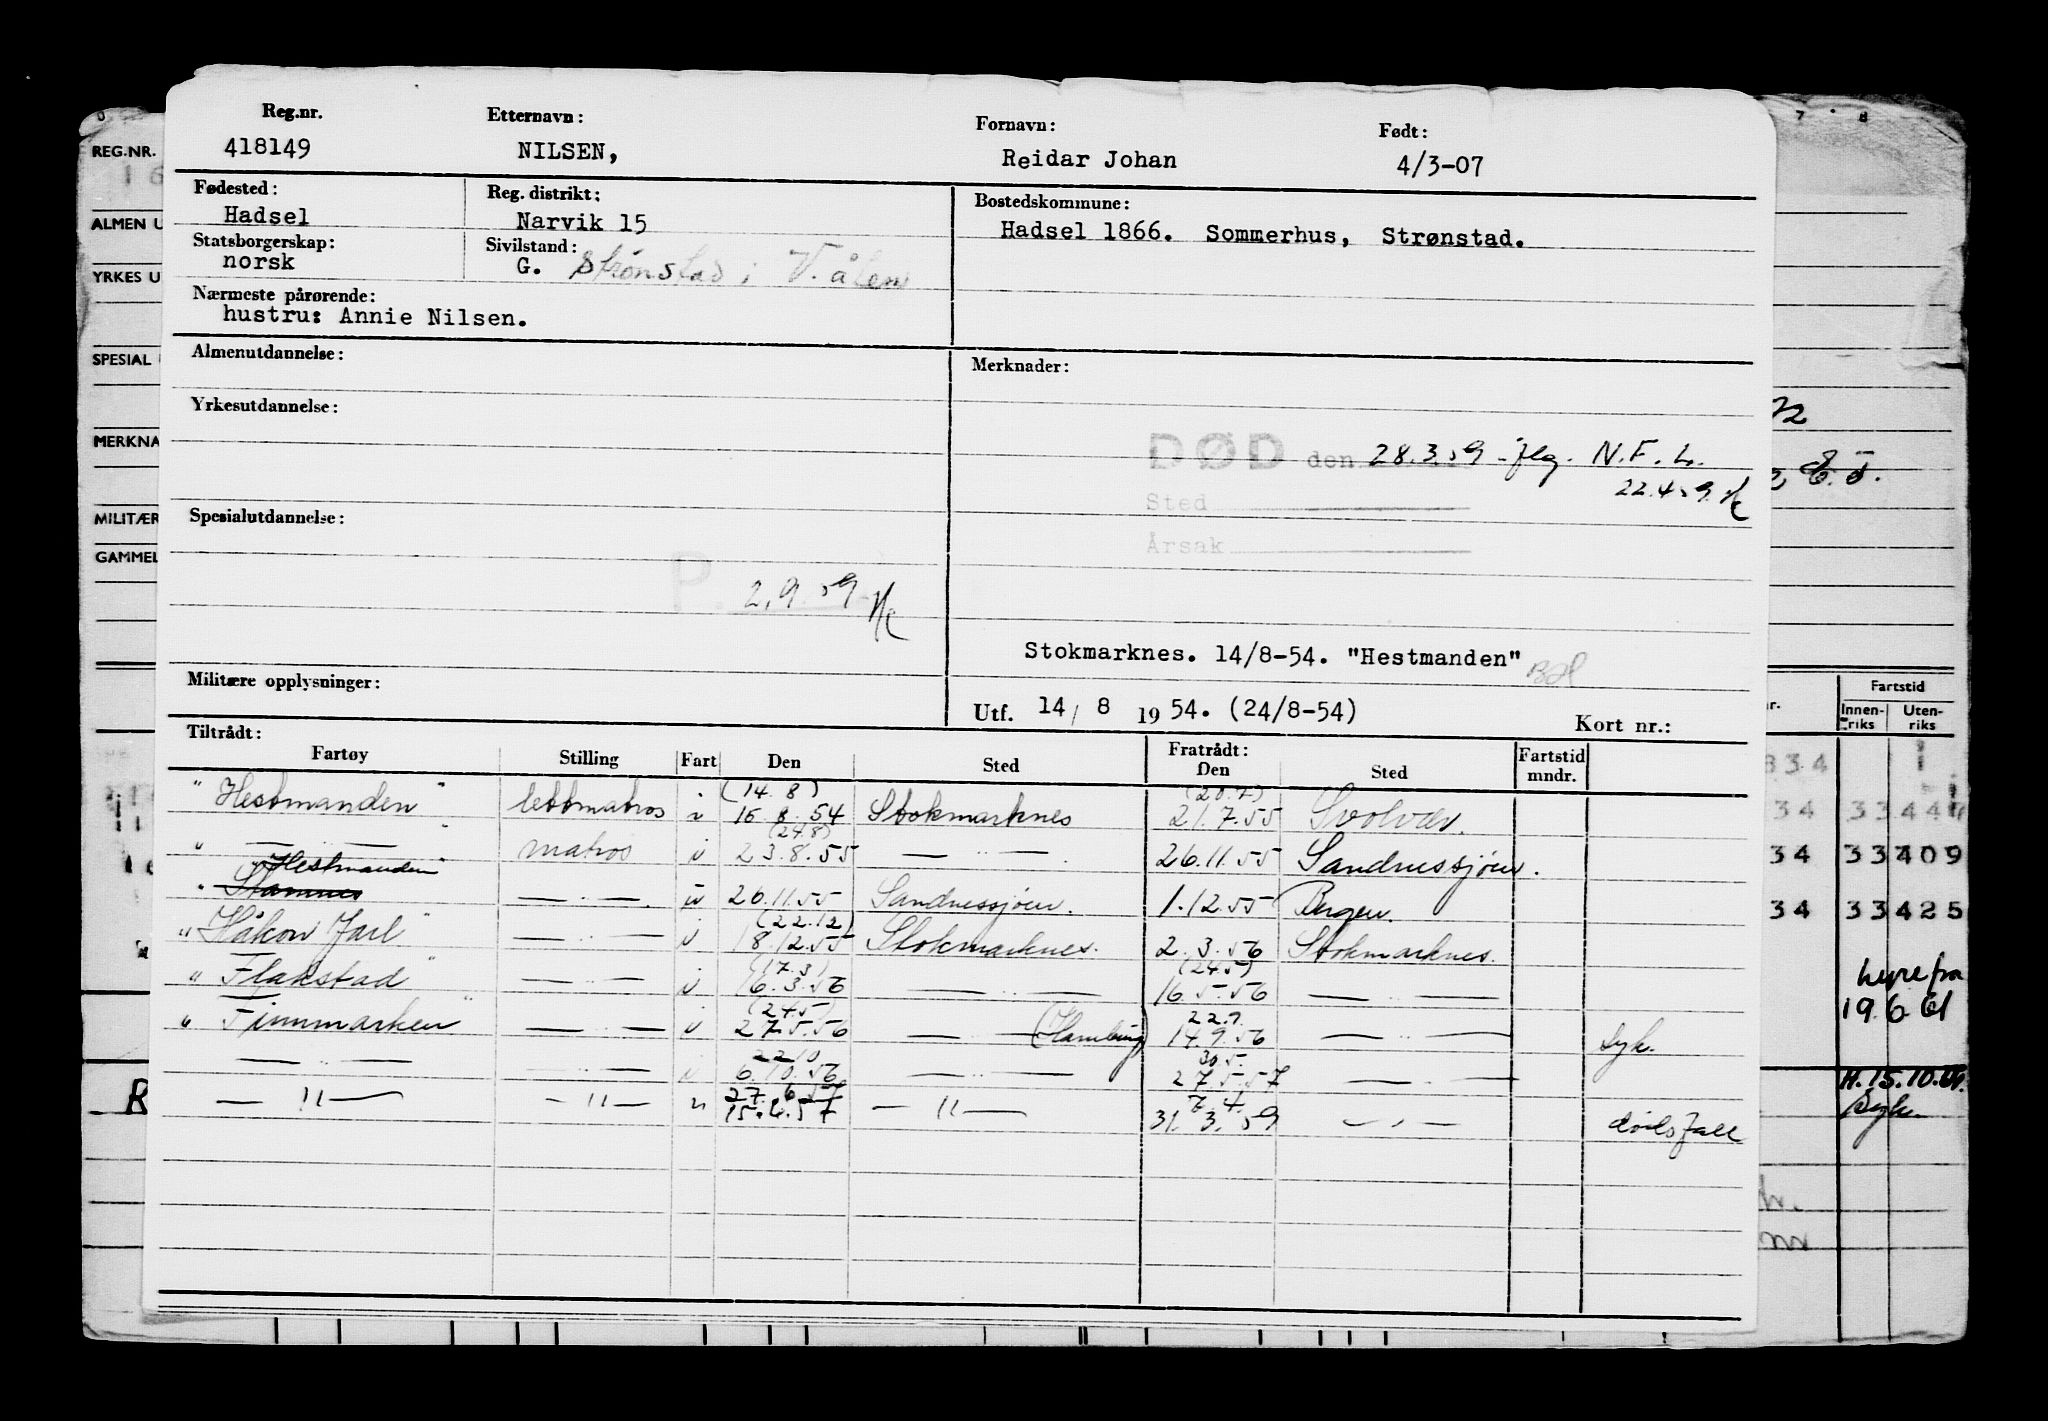 Reg.nr. Etternavn: Fornavn: Født:
418149 NILSEN, Reidar Johan 4/3-07
Fødested: Reg. distrikt: Bostedskommune:
Hadsel Narvik 15 Hadsel 1866. Sommerhus, Strønstad.
Statsborgerskap: Sivilstand:
norsk G. Strønstad i V.ålen
Nærmeste pårørende:
hustru: Annie Nilsen.
Almenutdannelse: Merknader:
Yrkesutdannelse:
DØD den 28.3.59 - jflg. N.F.L.
22.4.59
Sted
Årsak
Spesialutdannelse:
P. 2.9.59
Stokmarknes. 14/8-54. "Hestmanden"
Militære opplysninger:
Utf. 14/ 8 1954. (24/8-54) Kort nr.:
Tiltrådt: Fratrådt:
Fartøy Stilling Fart Den Sted Den Sted Fartstid mndr.
(14.8) (20.7)
"Hestmanden" lettmatros i 16.8.54 Stokmarknes 21.7.55 Svolvær.
(24.8)
" — " — " matros i 23.8.55 — " — 26.11.55 Sandnessjøen.
"Hestmanden"
Stamnes — " — u 26.11.55 Sandnessjøen. 1.12.55 Bergen.
(22.12)
"Håkon Jarl" — " — i 18.12.55 Stokmarknes. 2.3.56 Stokmarknes.
(17.3) (24.5)
"Flakstad" — " — i 16.3.56 — " — 16.5.56 — " —
(24.5) 22.9
"Finnmarken" — " — i 27.5.56 — " — (Hamburg) 14.9.56 — " — syk.
22.10 30.5.
— " — — " — i 6.10.56 — " — 27.5.57 — " —
27.6.57 7.4.
— " — — " — u 15.6.57 — " — 31.3.59 — " — dødsfall
REG.NR.
16
ALMEN U
YRKES U
SPESIAL
MERKNA
MILITÆR
GAMMEL
7 8
72
Fartstid
Innenriks Utenriks
834
34 3344
34 33409
34 33425
hyre fra
19.6.61
H.15.10.
Syk.